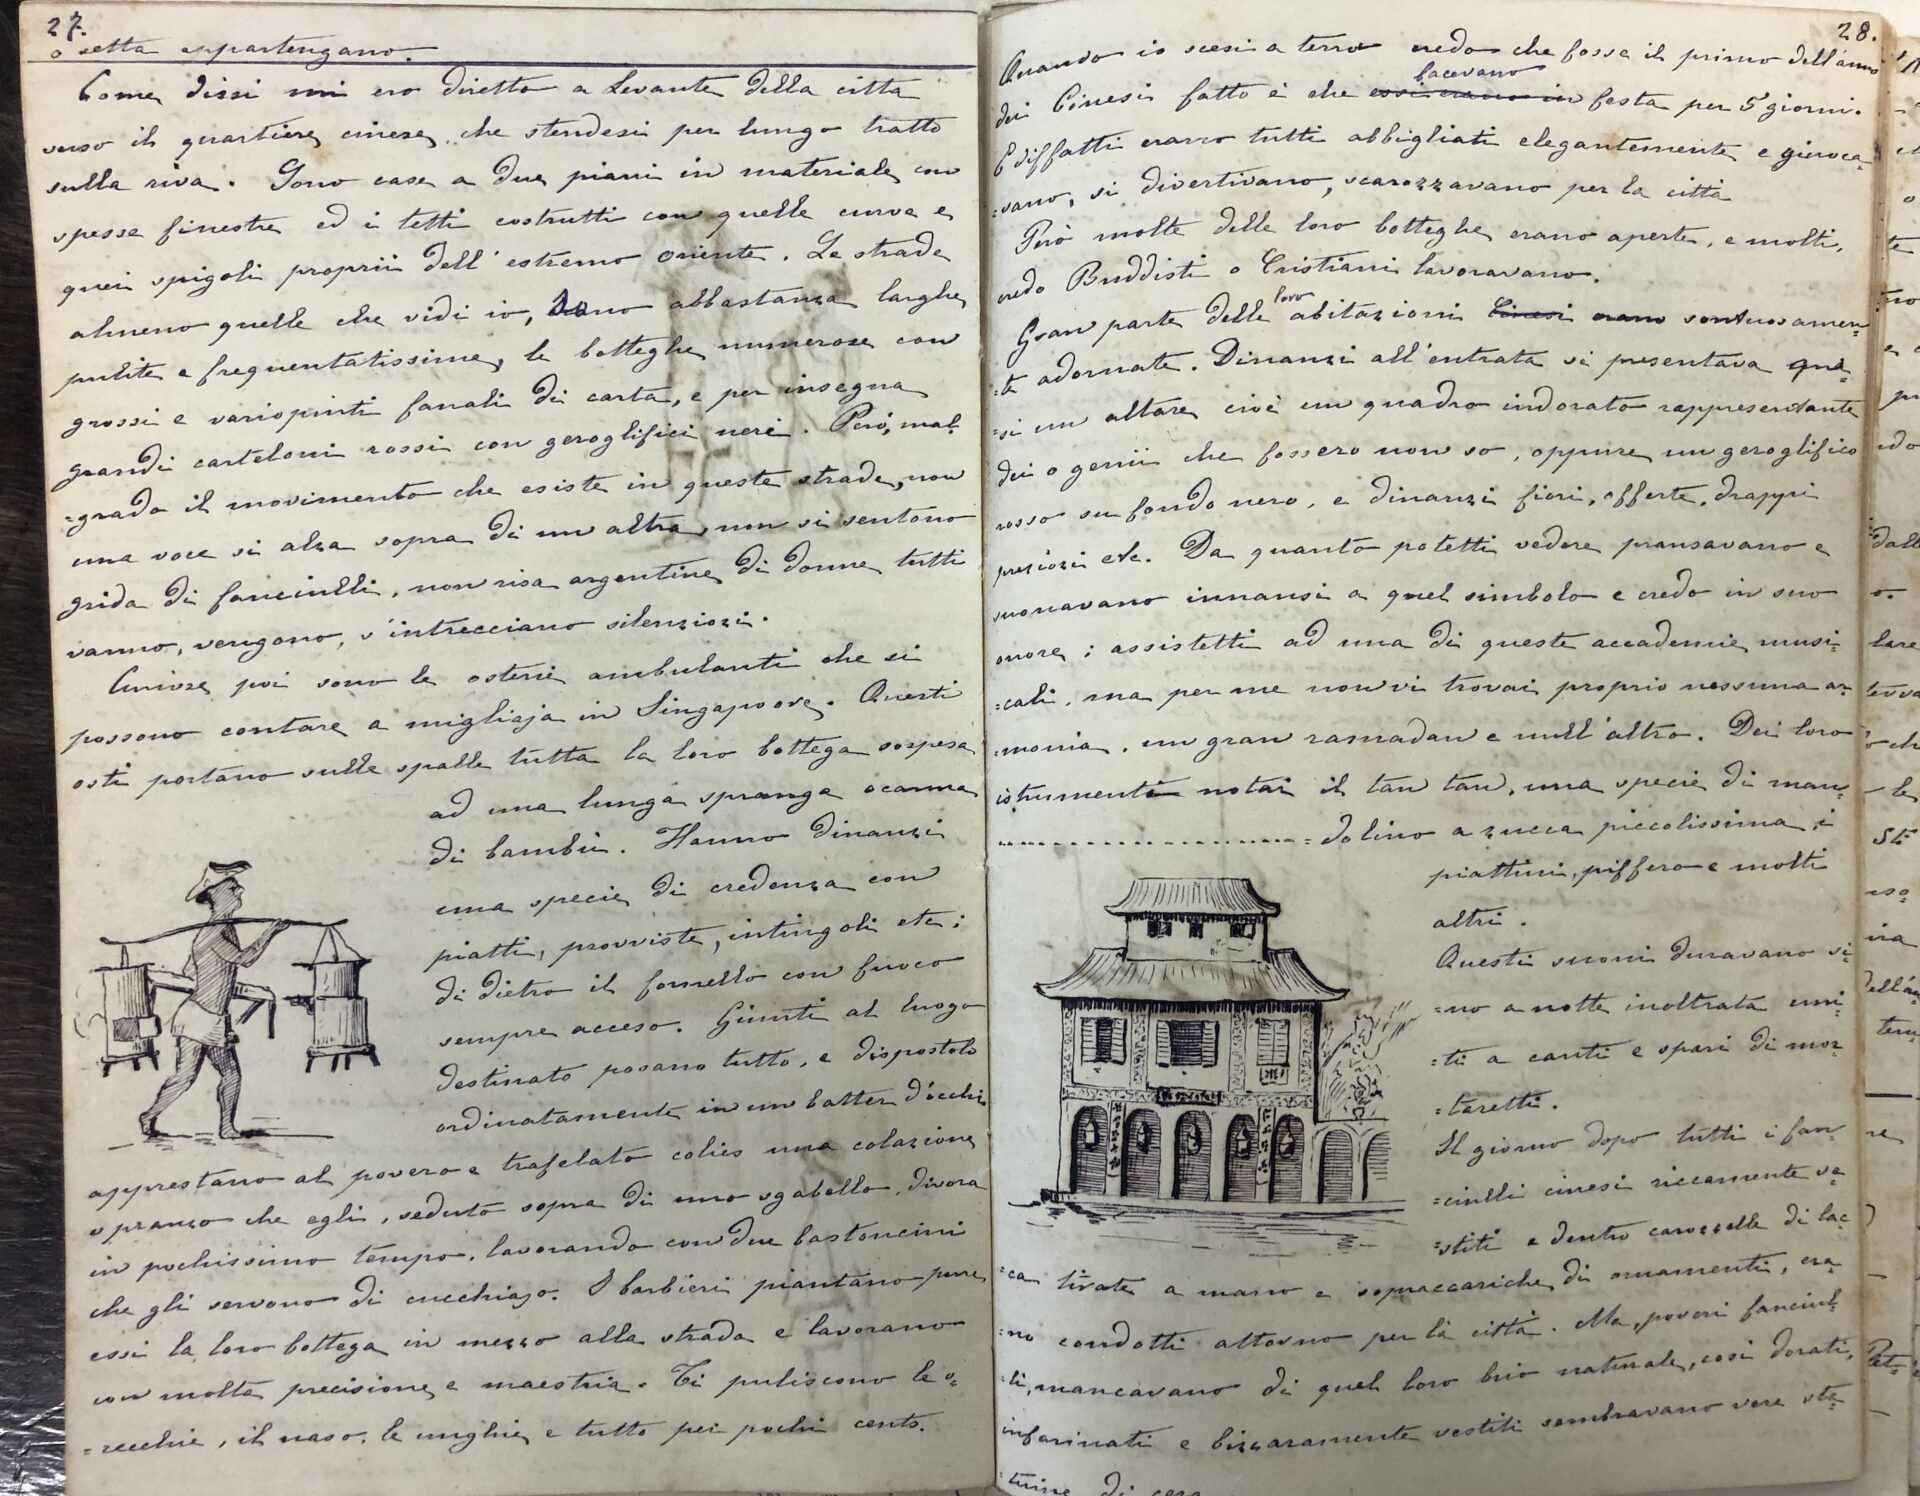 27.
o setta appartengano.
Come dissi mi ero diretto a Levante della città
verso il quartiere cinese, che stendesi per lungo tratto
sulla riva. Sono case a due piani in materiale con
spesse finestre ed i tetti costrutti con quelle curve e
quei spigoli proprii dell'estremo oriente. Le strade
almeno quelle che vidi io, sono abbastanza larghe
pulite e frequentatissime, le botteghe numerose con
grossi e variopinti fanali di carta, e per insegna
grandi carteloni rossi con geroglifici neri. Però, mal-
=grado il movimento che esiste in queste strade, non
una voce si alza sopra di un altra, non si sentono
grida di fanciulli, non risa argentine di donne, tutti
vanno, vengono, s'intrecciano silenziozi.
Curiose poi sono le osterie ambulanti che si
possono contare a migliaja in Singapoore. Questi
osti portano sulle spalle tutta la loro bottega sospesa
ad una lunga spranga o canna
di bambù. Hanno dinanzi
una specie di credenza con
piatti, provviste, intingoli etc;
di dietro il fornello con fuoco
sempre acceso. Giunti al luogo
destinato posano tutto, e dispostolo
ordinatamente in un batter d'occhio
apprestano al povero e trafelato colies una colazione
o pranzo che egli, seduto sopra di uno sgabello, divora
in pochissimo tempo, lavorando con due bastoncini
che gli servono di cucchiajo. I barbieri piantano pure
essi la loro bottega in mezzo alla strada e lavorano
con molta precisione e maestria. Ti puliscono le o-
=recchie, il naso, le unghie e tutto per pochi cents.
28.
Quando io scesi a terra credo che fosse il primo dell'anno
dei Cinesi fatto è che essi erano in facevano festa per 5 giorni.
E diffatti erano tutti abbigliati elegantemente e giuoca-
=vano, si divertivano, scarozzavano per la città
Però molte delle loro botteghe erano aperte, e molti,
credo Buddisti o Cristiani lavoravano.
Gran parte delle loro abitazioni Cinesi erano sontuosamen-
=te adornate. Dinanzi all'entrata si presentava qua-
=si un altare cioè un quadro indorato rappresentante
dei o genii che fossero non so, oppure un geroglifico
rosso su fondo nero, e dinanzi fiori, offerte, drappi
preziozi etc. Da quanto potetti vedere pransavano e
suonavano innanzi a quel simbolo e credo in suo
onore; assistetti ad una di queste accademie musi-
=cali, ma per me non vi trovai proprio nessuna ar-
=monia, un gran ramadan e null'altro. Dei loro
istrumenti notai il tan tan, una specie di man-
=dolino a zucca piccolissima, i
piattini, piffero e molti
altri.
Questi suoni duravano si-
=no a notte inoltrata uni-
=ti a canti e spari di mor-
=taretti.
Il giorno dopo tutti i fan-
=ciulli cinesi riccamente ve-
=stiti e dentro carozzelle di lac-
=ca tirate a mano e sopraccariche di ornamenti, era-
=no condotti attorno per la città. Ma, poveri fanciul-
=li, mancavano di quel loro brio naturale, così dorati,
infarinati e bizzaramente vestiti sembravano vere sta-
=tuine di cera